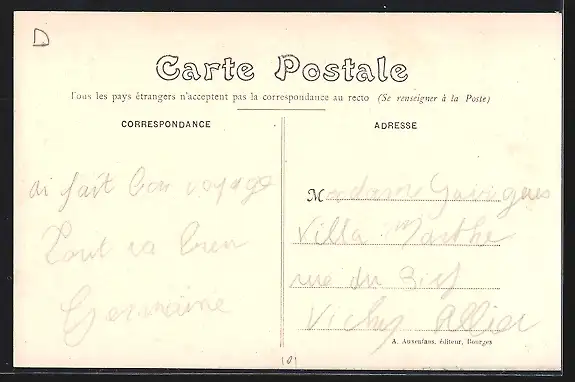 D
Carte Postale
Tous les pays étrangers n'acceptent pas la correspondance au recto (Se renseigner à la Poste)
CORRESPONDANCE
ADRESSE
ai fait bon voyage
Tout va bien
Germaine
Madame
Villa Marthe
rue du
Vichy Allier
A. Auxenfans, éditeur, Bourges